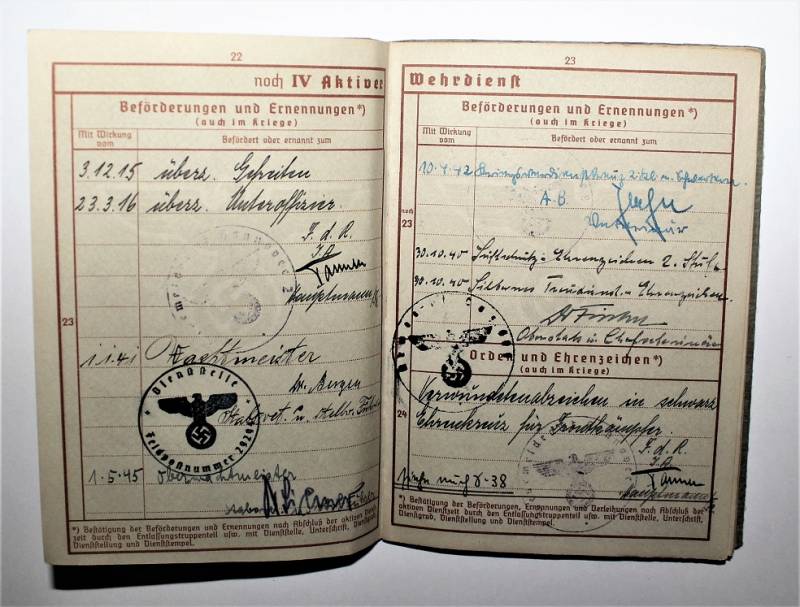 22
noch IV Aktiver
Beförderungen und Ernennungen*)
(auch im Kriege)
Mit Wirkung vom
Befördert oder ernannt zum
3.12.15 überz. Gefreiten
23.3.16 überz. Unteroffizier.
F. d. R.
I.A
Tammen
Hauptmann
23
1.1.41 Wachtmeister
Dr. Bergen
Stabsvet. u.
Dienststelle
Feldpostnummer
1.5.45 Oberwachtmeister
*) Bestätigung der Beförderungen und Ernennungen nach Abschluß der aktiven Dienst
zeit durch den Entlassungstruppenteil usw. mit Dienststelle, Unterschrift, Dienstgrad,
Dienststellung und Dienststempel.
23
Wehrdienst
Beförderungen und Ernennungen*)
(auch im Kriege)
Mit Wirkung vom
Befördert oder ernannt zum
10.4.42 Kriegsverdienstkreuz 2. Kl. m. Schwertern.
A.B.
Veterinär
noch
23
30.10.40 Luftschutz-Ehrenzeichen 2. Stufe
30.10.40 Silbernes Treudienst-Ehrenzeichen.
Oberstabs u. Chefveterinär
Orden und Ehrenzeichen*)
(auch im Kriege)
Verwundetenabzeichen in schwarz
24
Ehrenkreuz für Frontkämpfer
F. d. R.
I.A
Tammen
Hauptmann
Siehe auch S. 38
*) Bestätigung der Beförderungen, Ernennungen und Verleihungen nach Abschluß der
aktiven Dienstzeit durch den Entlassungstruppenteil usw. mit Dienststelle, Unterschrift,
Dienstgrad, Dienststellung und Dienststempel.